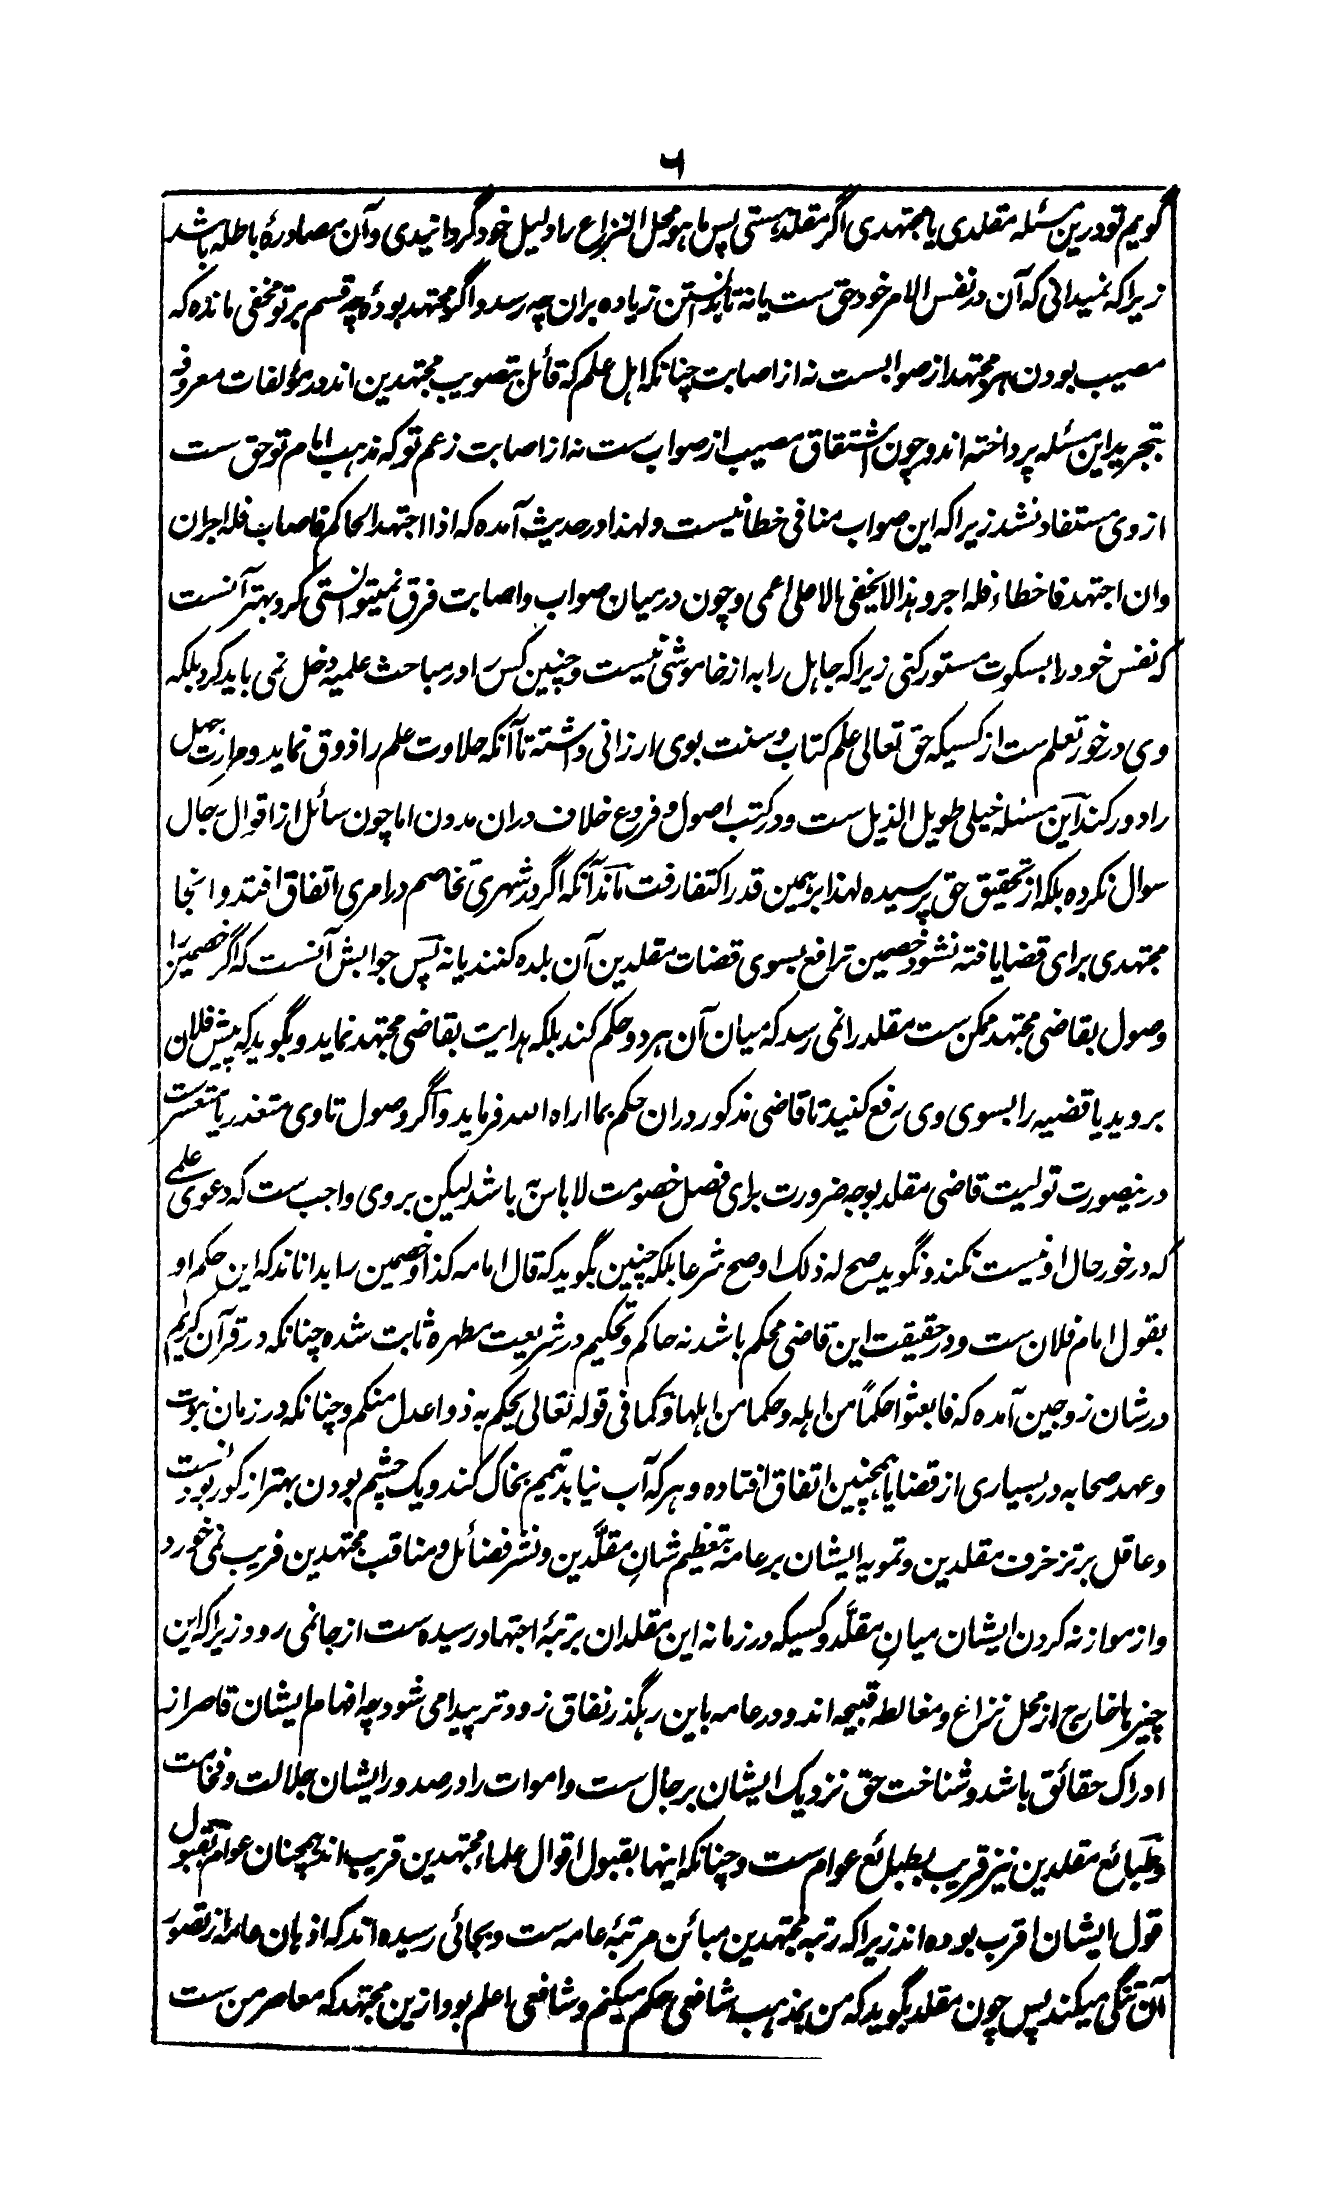 ۶
گویم تو درین مسئله مقلدی یا مجتهدی اگر مقلد هستی پس ما هو محل النزاع را دلیل خود گردانیدی و آن مصادرهٔ باطله باشد
زیرا که نمیدانی که آن در نفس الامر خود حق ست یا نه تا بدانستن زیاده بران چه رسد و اگر مجتهد بودهٔ چه قسم بر تو مخفی مانده که
مصیب بودن هر مجتهد از صوابست نه از اصابت چنانکه اهل علم که قائل بتصویب مجتهدین اند در مؤلفات معروفه
بتجرید این مسئله پرداخته اند و چون اشتقاق مصیب از صواب ست نه از اصابت زعم تو که مذهب امام تو حق ست
از وی مستفاد نشد زیرا که این صواب منافی خطا نیست و لهذا در حدیث آمده که اذا اجتهد الحاکم فاصاب فله اجران
وان اجتهد فاخطاء فله اجر و هذا لا یخفی الا علی اعمی و چون درمیان صواب و اصابت فرق نمیتوانستی کرد بهتر آنست
که نفس خود را بسکوت مستور کنی زیرا که جاهل را به از خاموشی نیست و چنین کس را در مباحث علمیه دخل نمی باید کرد بلکه
وی در خور تعلم ست از کسیکه حق تعالی علم کتاب و سنت بوی ارزانی داشته تا آنکه حلاوت علم را ذوق نماید و مرارت جهل
را دور کند این مسئله خیلی طویل الذیل ست و در کتب اصول و فروع خلاف دران مدون اما چون سائل از اقوال رجال
سوال نکرده بلکه از تحقیق حق پرسیده لهذا بر همین قدر اکتفا رفت ماند آنکه اگر در شهری تخاصم در امری اتفاق افتد و آنجا
مجتهدی برای قضا یافته نشود خصمین ترافع بسوی قضات مقلدین آن بلده کنند یا نه پس جوابش آنست که اگر خصمین را
وصول بقاضی مجتهد ممکن ست مقلد را نمی رسد که میان آن هر دو حکم کند بلکه هدایت بقاضی مجتهد نماید و بگوید که پیش فلان
بروید یا قضیه را بسوی وی رفع کنید تا قاضی مذکور دران حکم بما اراه الله فرماید و اگر وصول تا وی متعذر یا متعسر ست
درینصورت تولیت قاضی مقلد بوجه ضرورت برای فصل خصومت لا باس به باشد لیکن بر وی واجب ست که دعوی علمی
که در خور حال او نیست نکند و نگوید صح له ذلک او صح شرعا بلکه چنین بگوید که قال امامه کذا و خصمین را بداناند که این حکم او
بقول امام فلان ست و در حقیقت این قاضی محکم باشد نه حاکم و تحکیم در شریعت مطهره ثابت شده چنانکه در قرآن کریم
در شان زوجین آمده که فابعثوا حکماً من اهله و حکما من اهلها و کما فی قوله تعالی یحکم به ذوا عدل منکم و چنانکه در زمان نبوت
و عهد صحابه در بسیاری از قضایا همچنین اتفاق افتاده و هر که آب نیابد تیمم بخاک کند و یک چشم بودن بهتر از کور بودنست
و عاقل بر تزخرف مقلدین و تمویه ایشان بر عامه بتعظیم شانِ مقلَّدین و نشر فضائل و مناقب مجتهدین فریب نمی خورد
و از موازنه کردن ایشان میانِ مقلَّد و کسیکه در زمانه این مقلدان برتبهٔ اجتهاد رسیده ست از جا نمی رود زیرا که این
چیزها خارج از محل نزاع و مغالطه قبیحه اند و در عامه باین رهگذر نفاق زودتر پیدا می شود چه افهام ایشان قاصر از
ادراک حقائق باشد و شناخت حق نزدیک ایشان برجال ست و اموات را در صدور ایشان جلالت و فخامت
و طبائع مقلدین نیز قریب بطبائع عوام ست و چنانکه اینها بقبول اقوال علماء مجتهدین قریب اند همچنان عوام بقبول
قول ایشان اقرب بوده اند زیرا که رتبه مجتهدین مبائن مرتبهٔ عامه ست و بجائی رسیده اند که اذهان عامه از تصور
آن تنگی میکند پس چون مقلد بگوید که من بمذهب شافعی حکم میکنم و شافعی اعلم بود ازین مجتهد که معاصر من ست